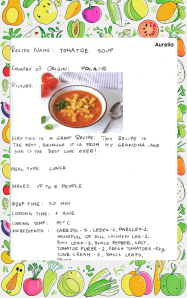 Aurelia
RECIPE NAME: TOMATOE SOUP
COUNTRY OF ORIGIN: POLAND
PICTURE:
WHY THIS IS A GREAT RECIPE: THIS RECIPE IS
THE BEST, BECAUSE IT IS FROM MY GRANDMA AND
SHE IS THE BEST COOK EVER!
MEAL TYPE: LUNCH
SERVES: UP TO 8 PEOPLE
PREP TIME: 30 MIN
COOKING TIME: 1 HOUR
COOKING TEMP:
INGREDIENTS: CARROTS - 5, LEEKS - 1, PARSLEY - 2
HANDFUL OF DILL, CHICKEN LEG - 2,
BAY LEAF - 3, BLACK PEPPER, SALT,
TOMATOE PUREE - 2, FRESH TOMATOES -
SOUR CREAM - 1, SMALL